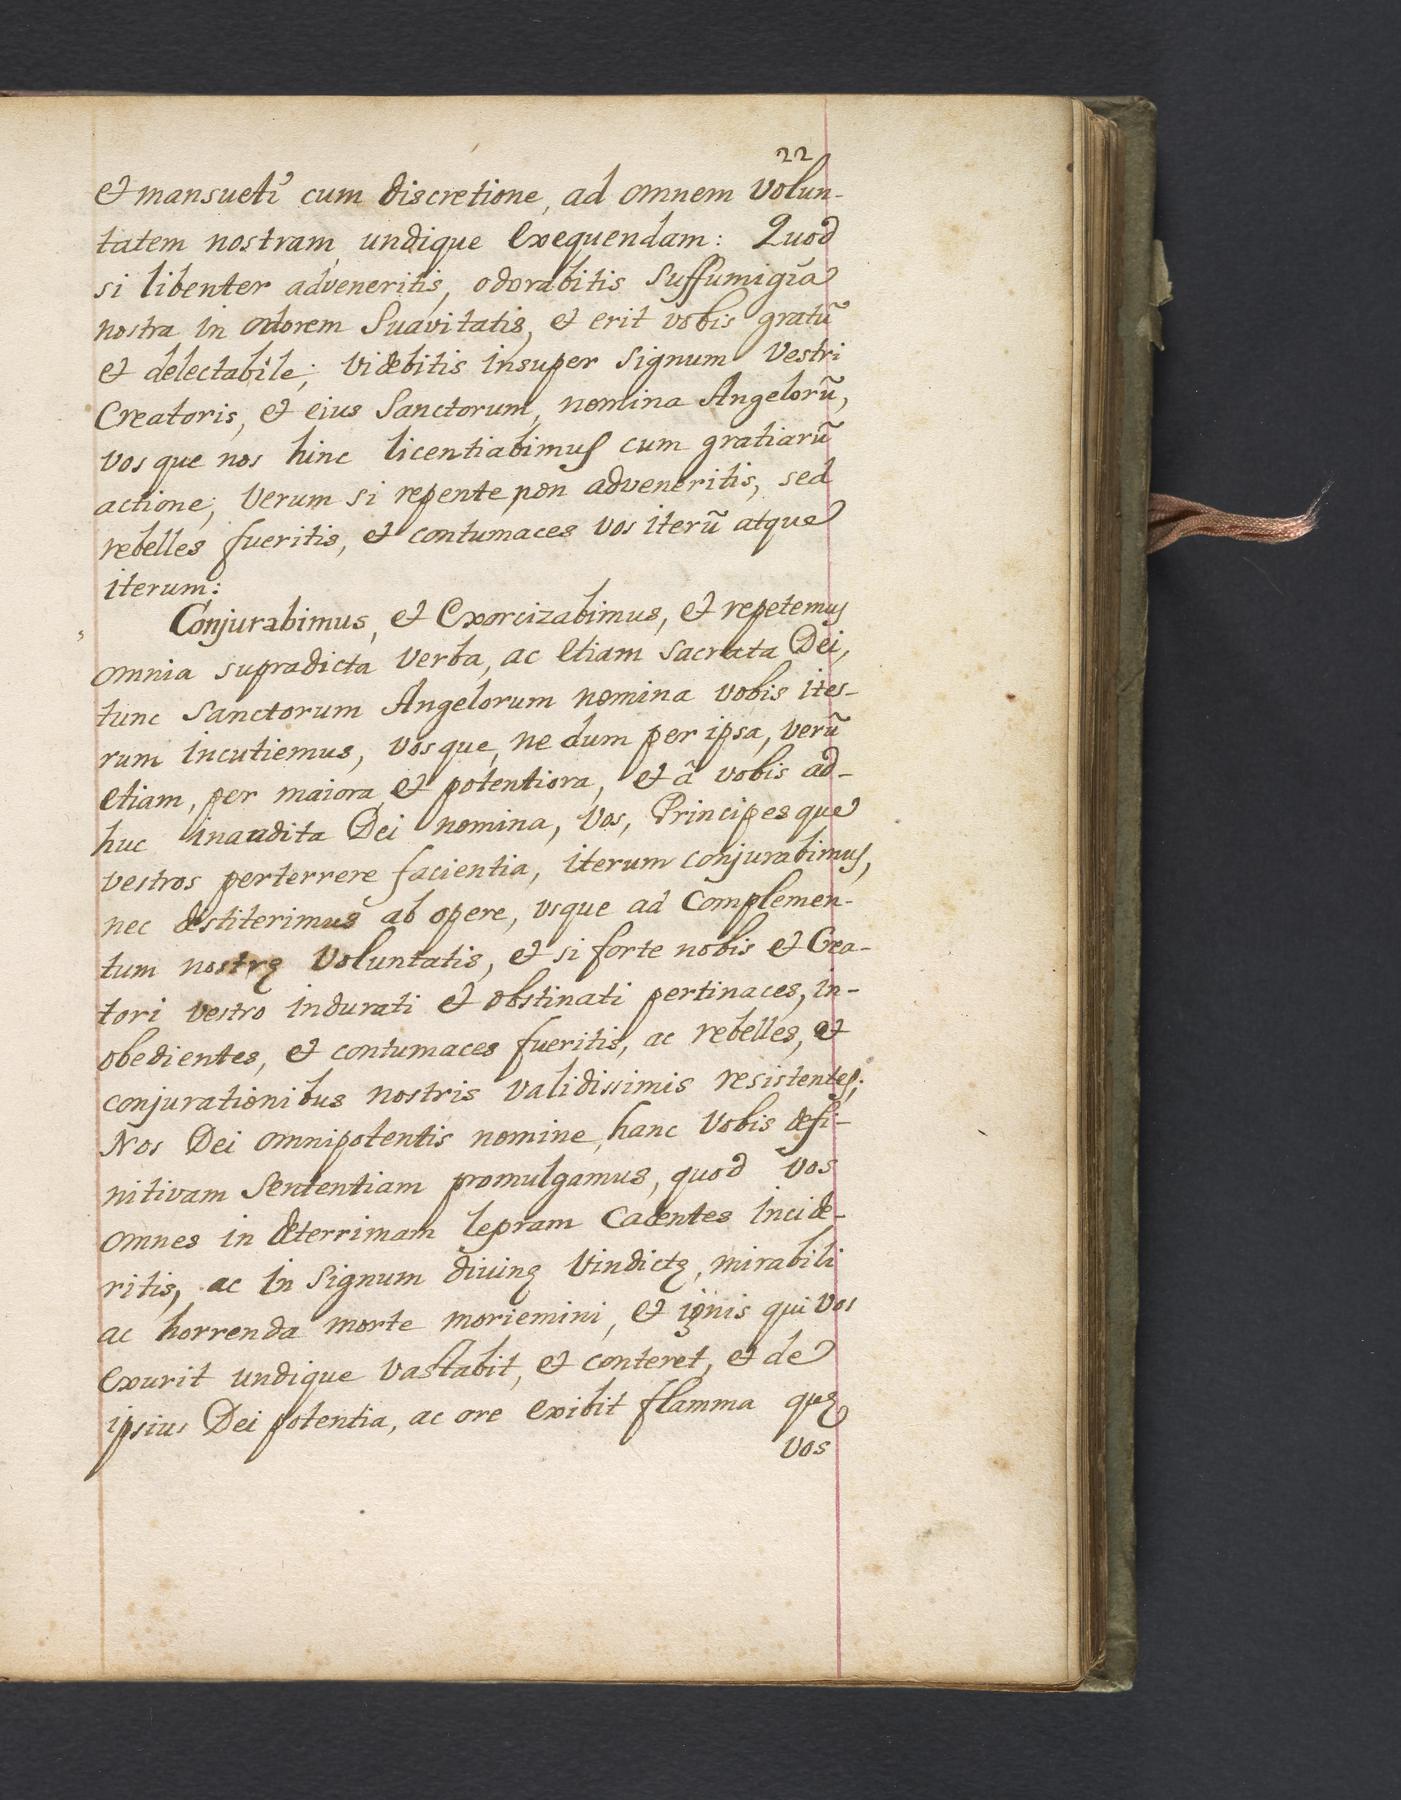 22
et mansueti cum discretione, ad omnem volun-
tatem nostram undique exequendam: Quod
si libenter adveneritis, odorabitis suffumigia
nostra in odorem Suavitatis, et erit vobis gratũ
et delectabile; videbitis insuper signum Vestri
Creatoris, et eius Sanctorum, nomina Angelorũ,
vos que nos hinc licentiabimus cum gratiarũ
actione; Verum si repente non adveneritis, sed
rebelles fueritis, et contumaces vos iterũ atque
iterum:
Conjurabimus, et Exorcizabimus, et repetemus
omnia supradicta verba, ac etiam sacrata Dei,
tunc Sanctorum Angelorum nomina vobis ite-
rum incutiemus, vos que, ne dum per ipsa, verũ
etiam, per maiora et potentiora, et â vobis ad-
huc inaudita Dei nomina, Vos, Principes que
vestros perterrere facientia, iterum conjurabimus,
nec destiterimus ab opere, usque ad Complemen-
tum nostrę Voluntatis, et si forte nobis et Crea-
tori vestro indurati et obstinati pertinaces, in-
obedientes, et contumaces fueritis, ac rebelles, et
conjurationibus nostris validissimis resistentes;
Nos Dei omnipotentis nomine, hanc Vobis defi-
nitivam Sententiam promulgamus, quod vos
omnes in deterrimam lepram Cadentes incide-
ritis, ac in signum divinę Vindictę, mirabili
ac horrenda morte moriemini, et ignis qui vos
exurit undique vastabit, et conteret, et de
ipsius Dei potentia, ac ore exibit flamma quę
vos